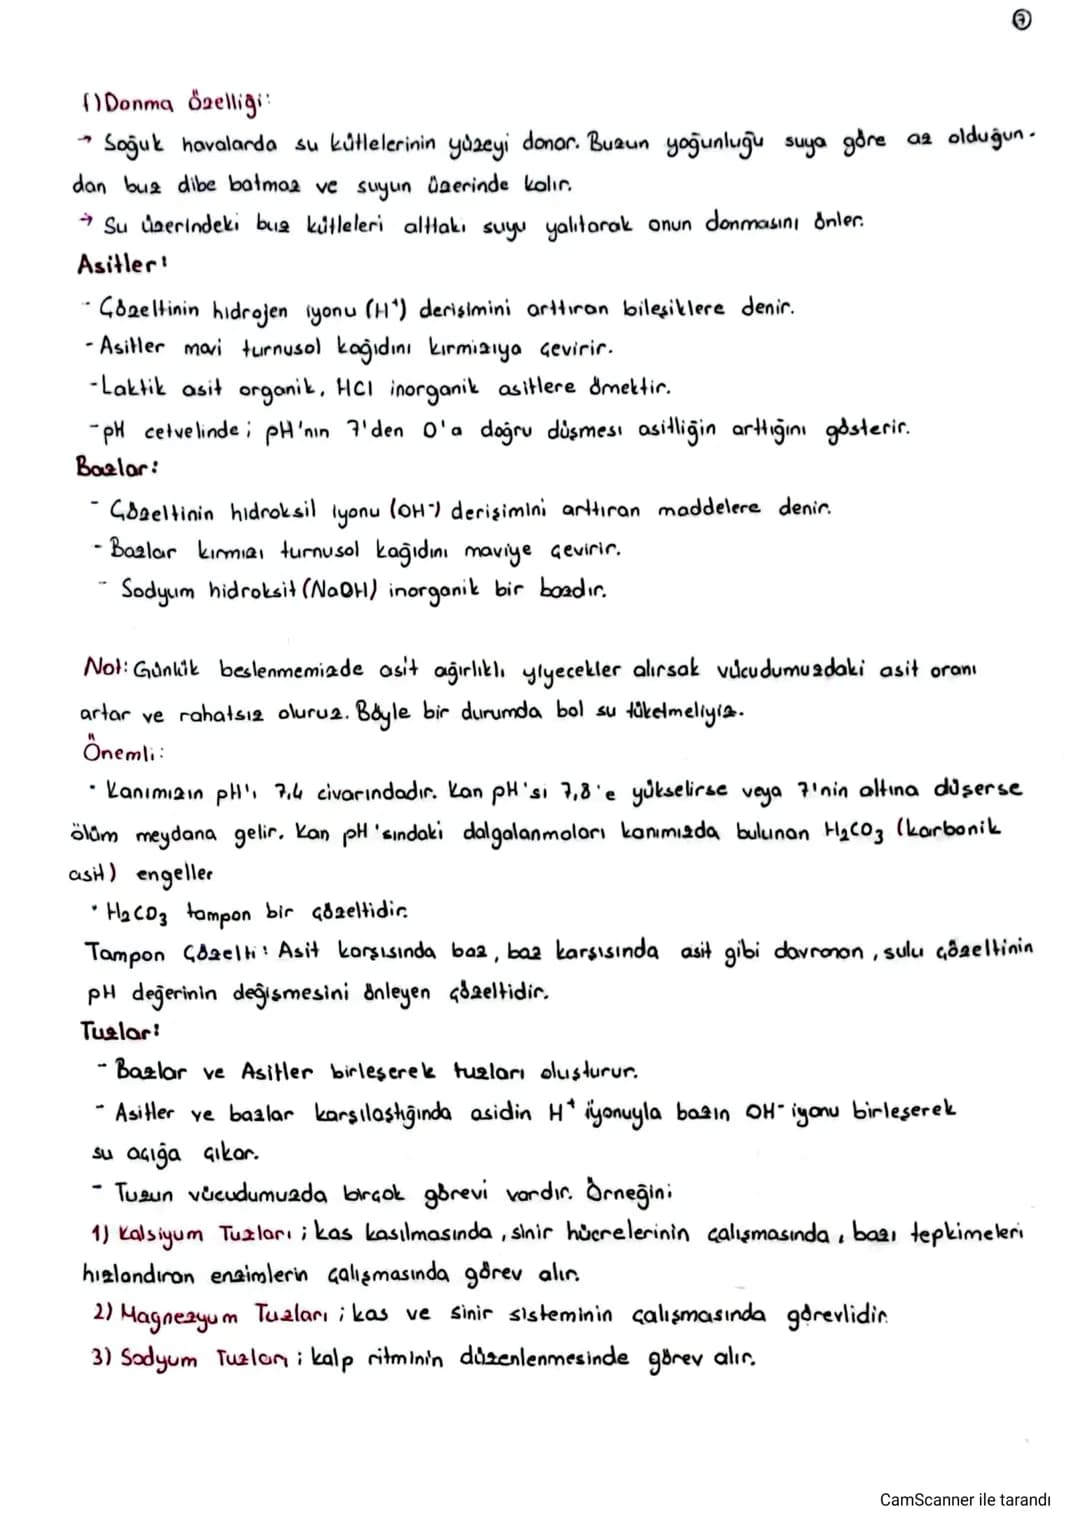 7
f) Donma Özelliği:
→ Soğuk havalarda su kütlelerinin yüzeyi donar. Buzun yoğunluğu suya göre az olduğun-
dan buz dibe batmaz ve suyun üzerinde kalır.
→ Su üzerindeki buz kütleleri alttaki suyu yalıtarak onun donmasını önler.
Asitler:
- Çözeltinin hidrojen iyonu (H⁺) derişimini arttıran bileşiklere denir.
- Asitler mavi turnusol kağıdını kırmızıya çevirir.
- Laktik asit organik, HCl inorganik asitlere örnektir.
- pH cetvelinde; pH'nın 7'den 0'a doğru düşmesi asitliğin arttığını gösterir.
Bazlar:
- Çözeltinin hidroksil iyonu (OH⁻) derişimini arttıran maddelere denir.
- Bazlar kırmızı turnusol kağıdını maviye çevirir.
- Sodyum hidroksit (NaOH) inorganik bir bazdır.
Not: Günlük beslenmemizde asit ağırlıklı yiyecekler alırsak vücudumuzdaki asit oranı
artar ve rahatsız oluruz. Böyle bir durumda bol su tüketmeliyiz.
Önemli:
• Kanımızın pH'ı 7,4 civarındadır. Kan pH'si 7,8'e yükselirse veya 7'nin altına düşerse
ölüm meydana gelir. Kan pH'sındaki dalgalanmaları kanımızda bulunan H₂CO₃ (karbonik
asit) engeller
• H₂CO₃ tampon bir çözeltidir.
Tampon Çözelti: Asit karşısında baz, baz karşısında asit gibi davranan, sulu çözeltinin
pH değerinin değişmesini önleyen çözeltidir.
Tuzlar:
- Bazlar ve Asitler birleşerek tuzları oluşturur.
- Asitler ve bazlar karşılaştığında asidin H⁺ iyonuyla bazın OH⁻ iyonu birleşerek
su açığa çıkar.
- Tuzun vücudumuzda birçok görevi vardır. Örneğin;
1) Kalsiyum Tuzları; kas kasılmasında, sinir hücrelerinin çalışmasında, bazı tepkimeleri
hızlandıran enzimlerin çalışmasında görev alır.
2) Magnezyum Tuzları; kas ve sinir sisteminin çalışmasında görevlidir
3) Sodyum Tuzları; kalp ritminin düzenlenmesinde görev alır.
CamScanner ile tarandı